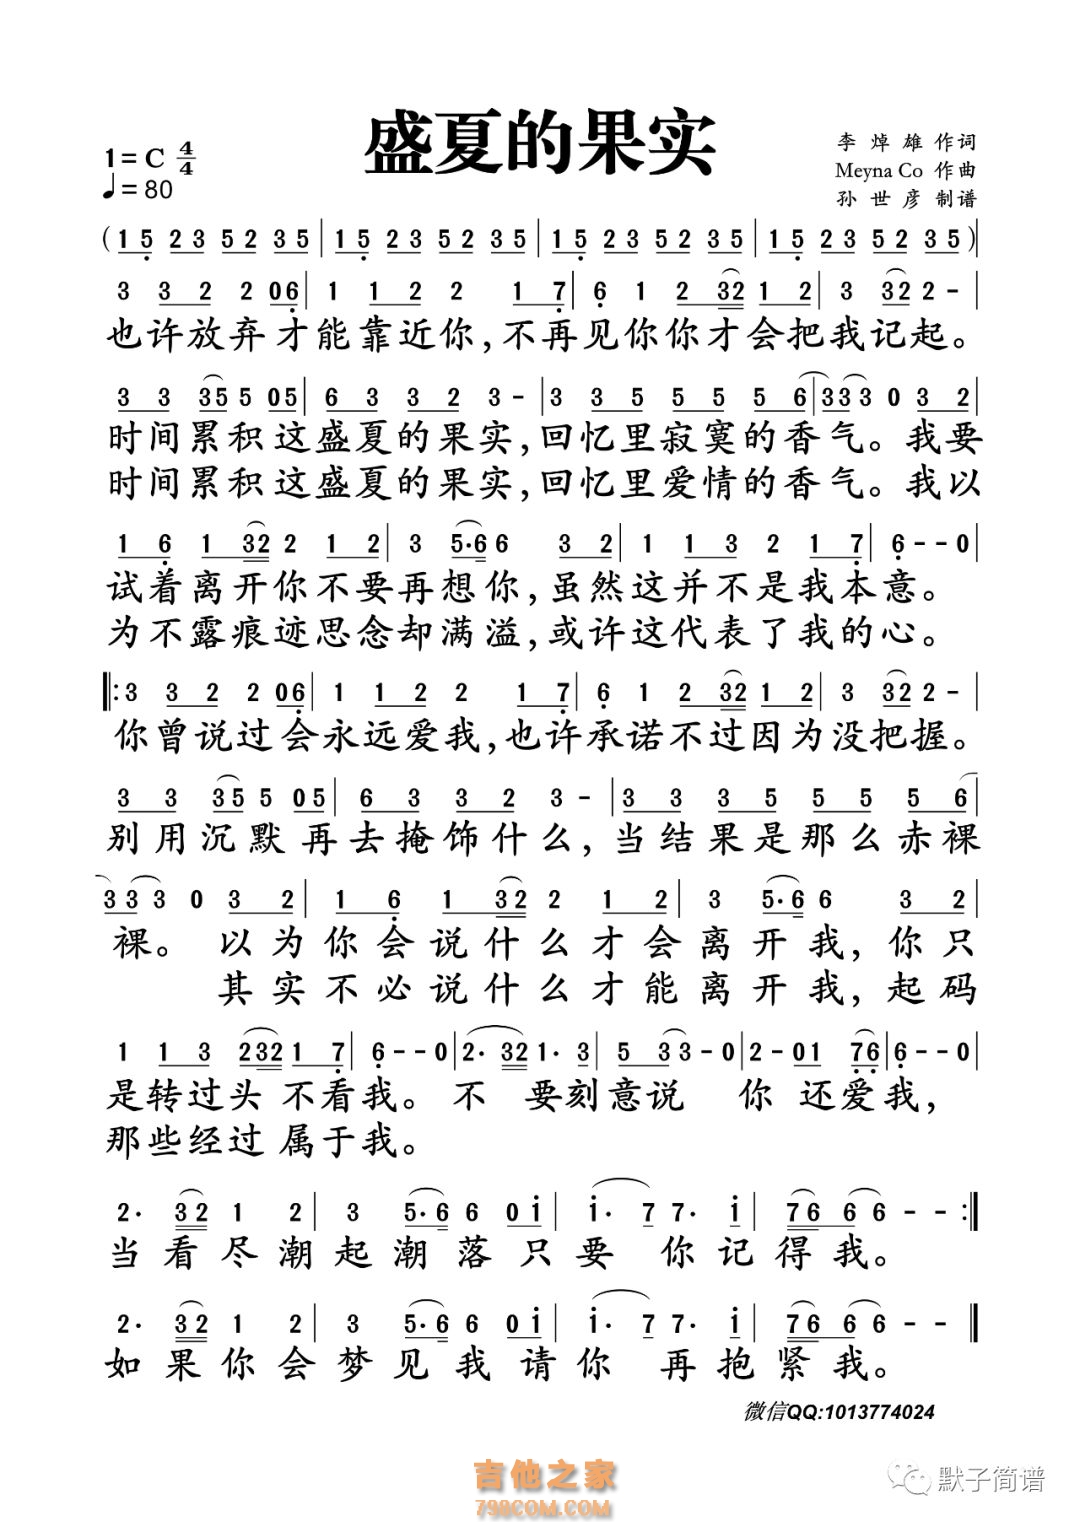 盛夏的果实
1=C 4/4
♩=80
李焯雄 作词
Meyna Co 作曲
孙世彦 制谱
(1 5̣ 2 3 5 2 3 5 | 1 5̣ 2 3 5 2 3 5 | 1 5̣ 2 3 5 2 3 5 | 1 5̣ 2 3 5 2 3 5)
3 3 2 2 0 6̣ | 1 1 2 2 1 7̣ | 6̣ 1 2 32 1 2 | 3 32 2 - |
也许放弃才能靠近你,不再见你你才会把我记起。
3 3 35 5 0 5 | 6 3 3 2 3 - | 3 3 5 5 5 5 6 | 3 3 3 0 3 2 |
时间累积这盛夏的果实,回忆里寂寞的香气。我要
时间累积这盛夏的果实,回忆里爱情的香气。我以
1 6̣ 1 32 2 1 2 | 3 5·6 6 3 2 | 1 1 3 2 1 7̣ | 6̣ - - 0
试着离开你不要再想你,虽然这并不是我本意。
为不露痕迹思念却满溢,或许这代表了我的心。
‖: 3 3 2 2 0 6̣ | 1 1 2 2 1 7̣ | 6̣ 1 2 32 1 2 | 3 32 2 - |
你曾说过会永远爱我,也许承诺不过因为没把握。
3 3 35 5 0 5 | 6 3 3 2 3 - | 3 3 3 5 5 5 5 6 |
别用沉默再去掩饰什么,当结果是那么赤裸
3 3 3 0 3 2 | 1 6̣ 1 32 2 1 2 | 3 5·6 6 3 2 |
裸。以为你会说什么才会离开我,你只
其实不必说什么才能离开我,起码
1 1 3 232 1 7̣ | 6̣ - - 0 | 2· 32 1· 3 | 5 3 3 - 0 | 2 - 0 1 7̣6̣ | 6̣ - - 0 |
是转过头不看我。不要刻意说 你还爱我,
那些经过属于我。
2· 32 1 2 | 3 5·6 6 0 i | i· 7 7· i | 76 6 6 - - :‖
当看尽潮起潮落只要你记得我。
2· 32 1 2 | 3 5·6 6 0 i | i· 7 7· i | 76 6 6 - - ‖
如果你会梦见我请你再抱紧我。
微信QQ:1013774024
吉他之家
798COM.COM
默子简谱